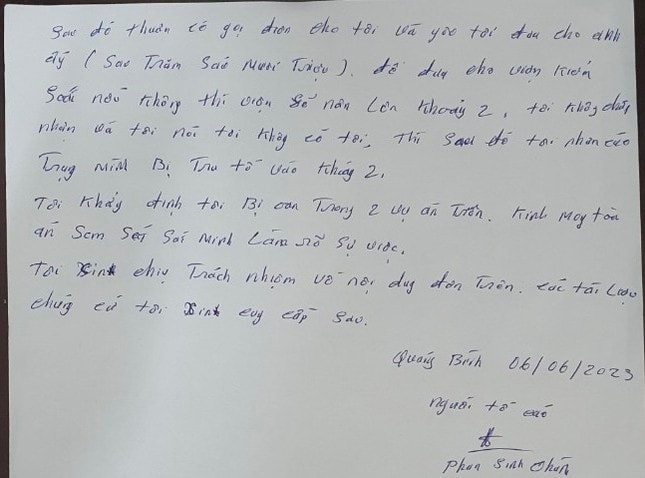 Sao đó thuân có gọi điên cho tôi và yêo tôi đưa cho anh
ấy (Sáo Trăm Sáo Mươi Triệu). để đưa cho viện Kiển
Soái nếu không thì viện Sẽ nân Lên Khoảy 2, tôi không chấp
nhận và tôi nói tôi không có tội, Thì Sao đó tôi nhân cáo
Trạng mình Bị Tru tố vào Khảng 2,
Tôi Khảy định tôi Bị oan Trong 2 vụ án Trên. Kính Moy tòa
án Sem Sét Sái Minh Làm rõ Sự việc,
Tôi Xinh chịu Trách nhiệm về nội duy đơn Trên. các tài Liệu
chứg cứ tôi Xinh cug cấp Sao.
Quảng Bình 06/06/2023
Người tố cáo
Phan Sinh